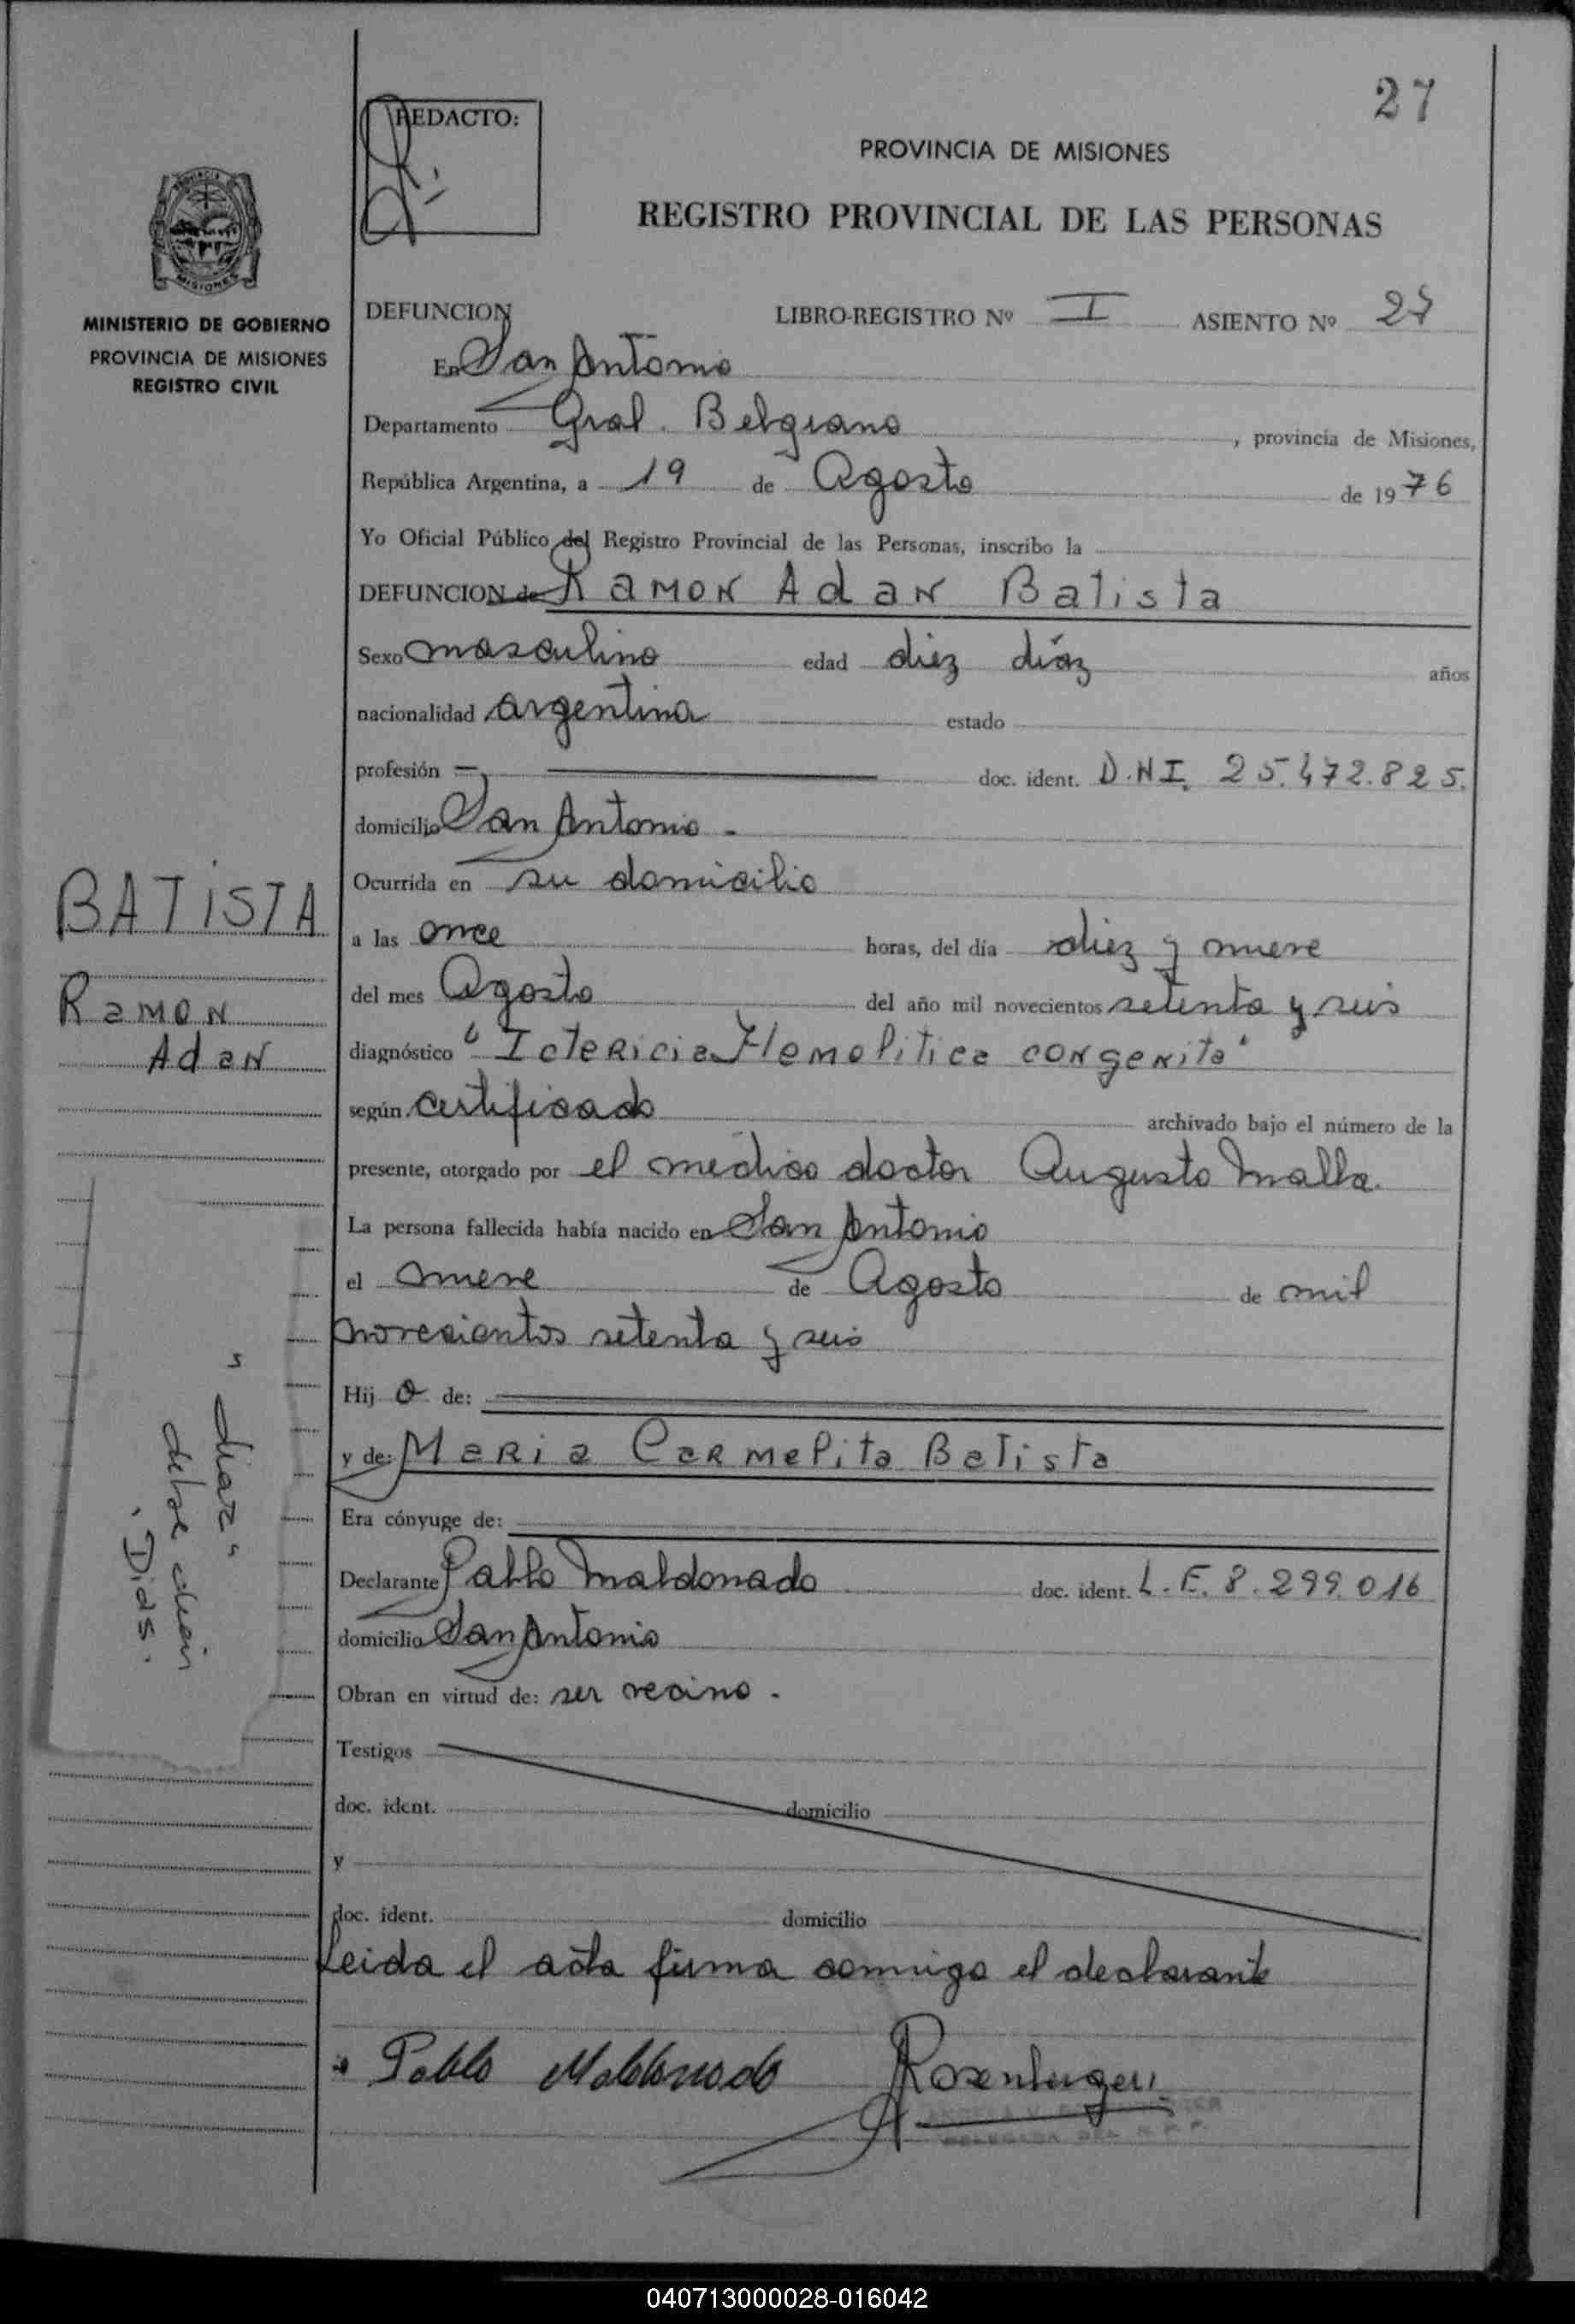 27
REDACTO:
PROVINCIA DE MISIONES
REGISTRO PROVINCIAL DE LAS PERSONAS
MISIONES
MINISTERIO DE GOBIERNO
PROVINCIA DE MISIONES
REGISTRO CIVIL
DEFUNCION LIBRO-REGISTRO Nº I ASIENTO Nº 27
En San Antonio
Departamento Gral. Belgrano, provincia de Misiones,
República Argentina, a 19 de Agosto de 1976
Yo Oficial Público del Registro Provincial de las Personas, inscribo la
DEFUNCION de Ramon Adan Batista
Sexo masculino edad diez díaz años
nacionalidad argentina estado
profesión —, doc. ident. D.N.I. 25.472.825.
domicilio San Antonio -
Ocurrida en su domicilio
a las once horas, del día diez y nueve
del mes Agosto del año mil novecientos setenta y seis
diagnóstico "Ictericia Hemolitica congenita"
según certificado archivado bajo el número de la
presente, otorgado por el medico doctor Augusto Malla.
La persona fallecida había nacido en San Antonio
el nueve de Agosto de mil
novecientos setenta y seis
Hijo de:
y de: Maria Carmelita Batista
Era cónyuge de:
Declarante Pablo Maldonado doc. ident. L.E. 8.299.016
domicilio San Antonio
Obran en virtud de: ser vecino.
Testigos
doc. ident. domicilio
y
doc. ident. domicilio
Leida el acta firma conmigo el declarante
Pablo Maldonado Rosenberger
DELEGADA DEL R.P.P.
BATISTA
Ramon
Adan
"diaz"
debe decir
"Dias"
040713000028-016042